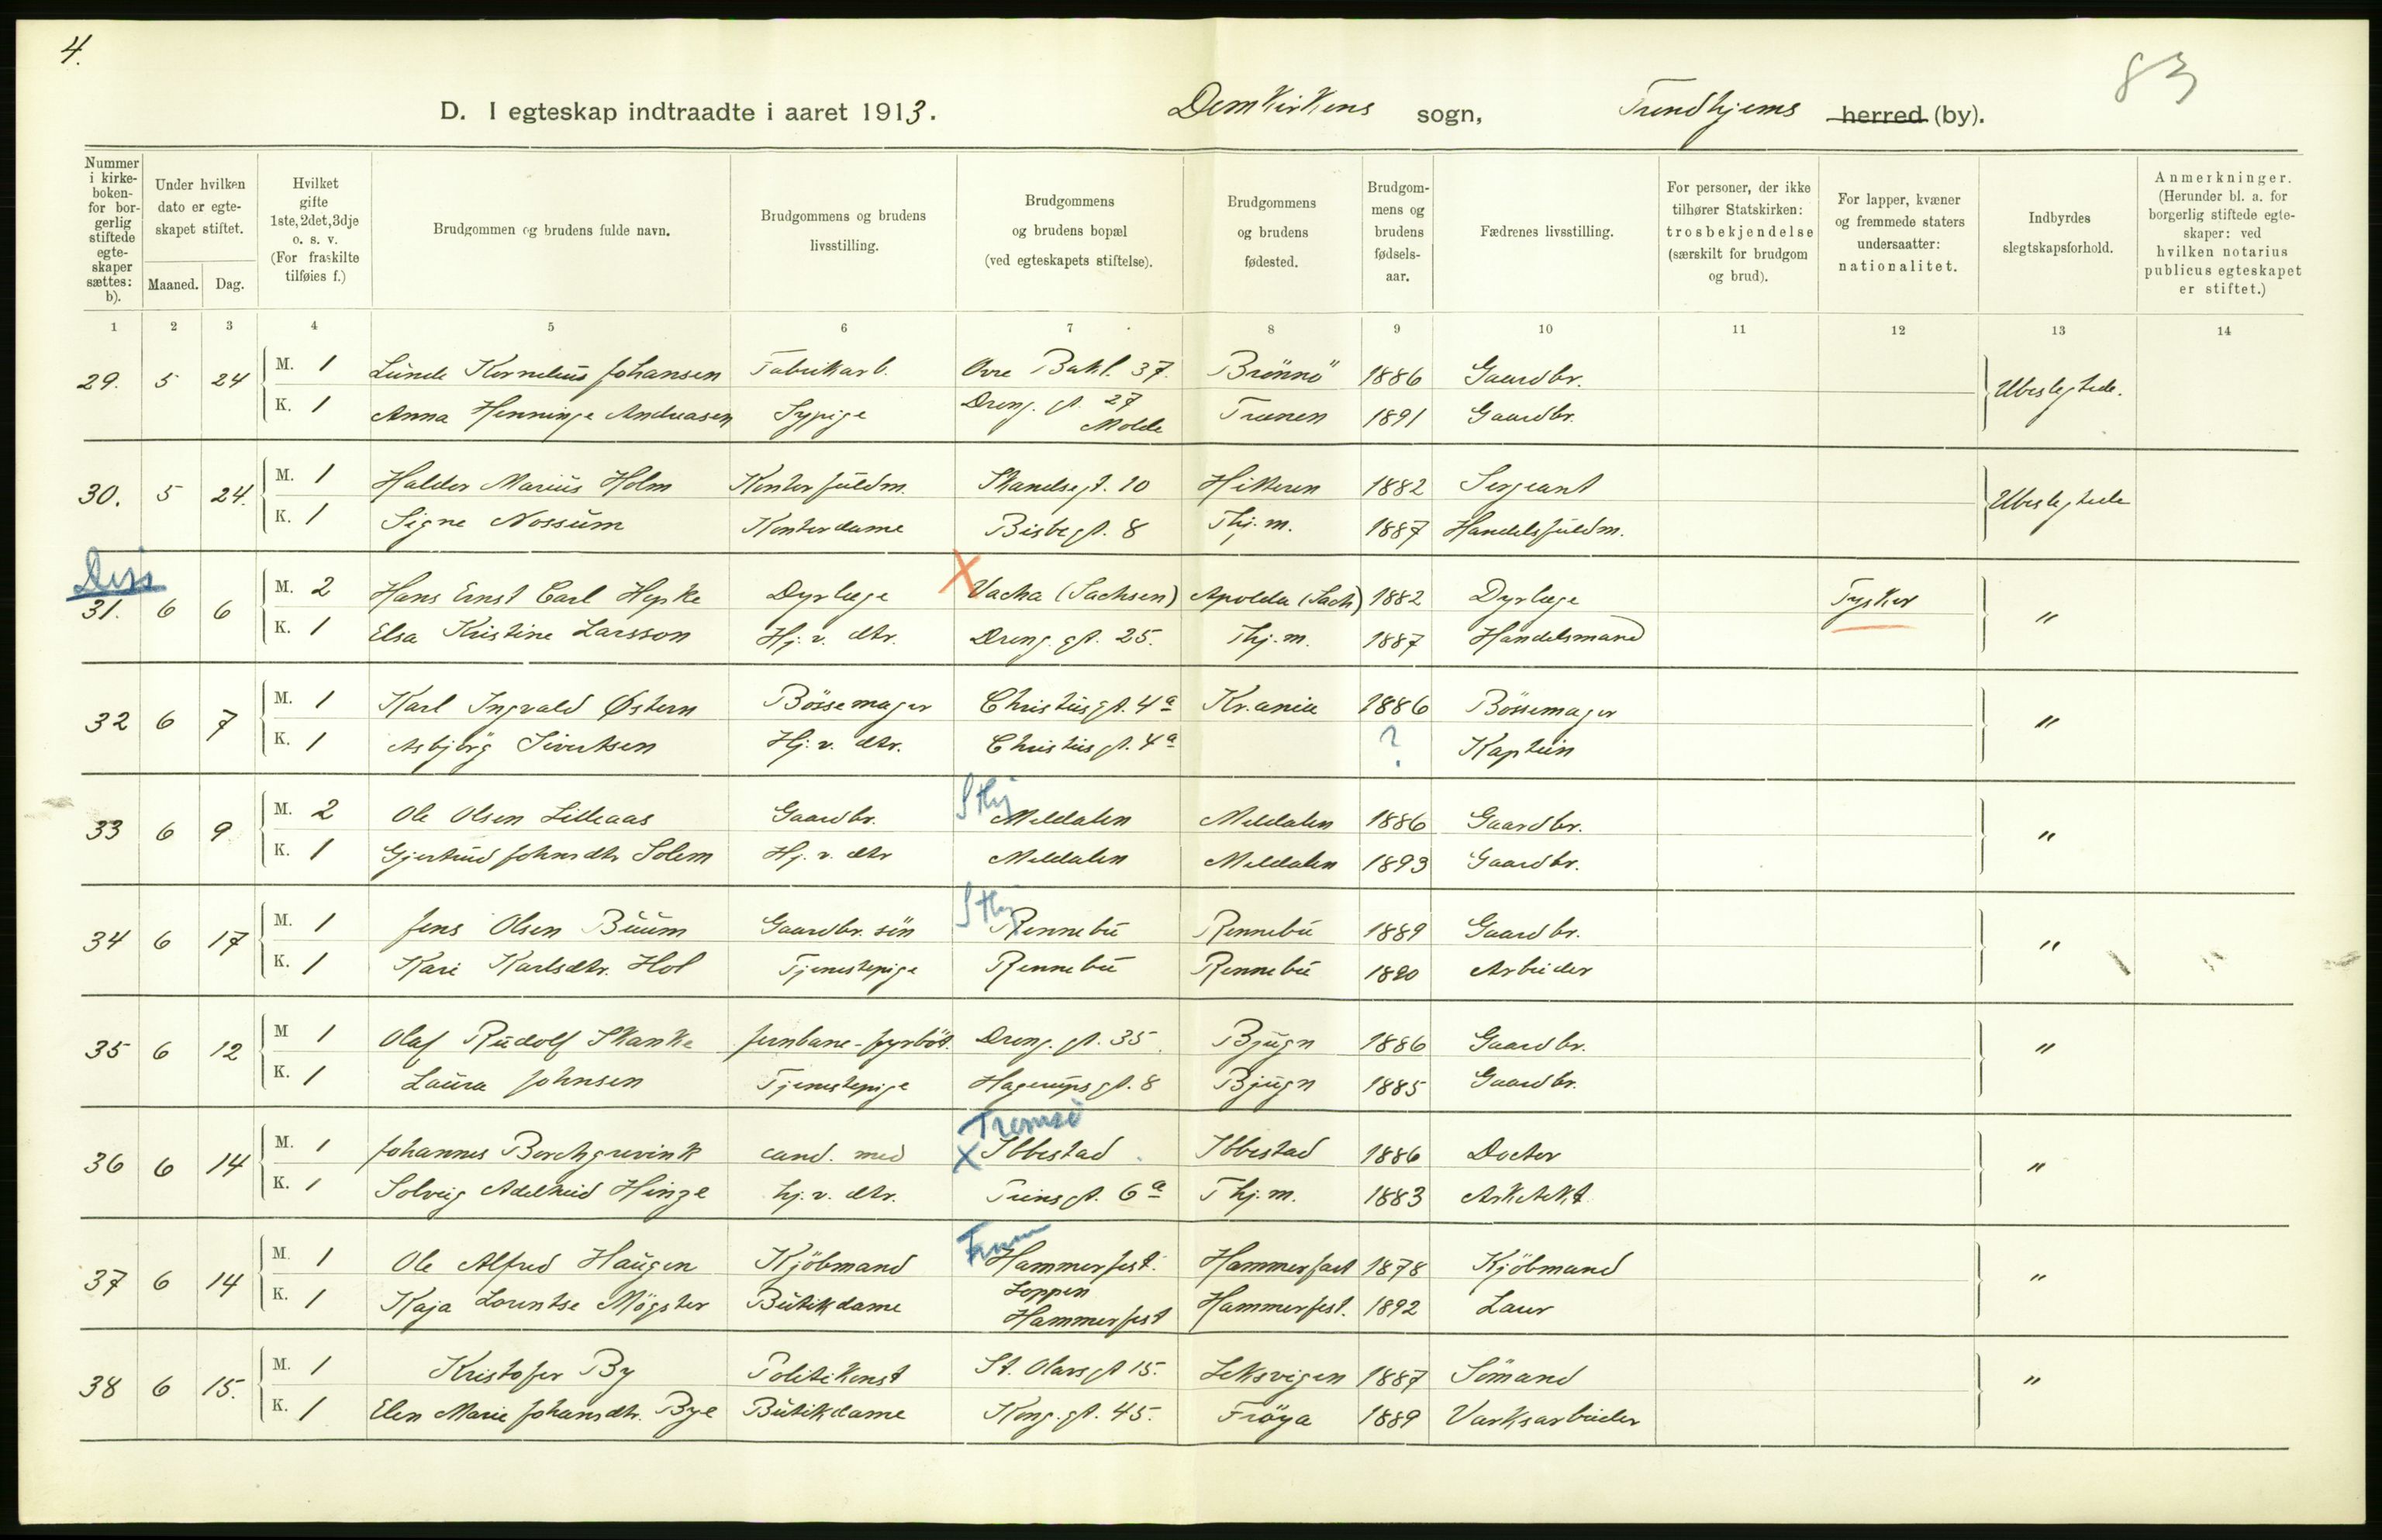 4.
83
D. I egteskap indtraadte i aaret 1913. Domkirkens sogn, Trondhjems herred (by).
Nummer i kirkeboken- for borgerlig stiftede egteskaper sættes: b).
Under hvilken dato er egteskapet stiftet.
Maaned. Dag.
Hvilket gifte 1ste, 2det, 3dje o. s. v. (For fraskilte tilføies f.)
Brudgommen og brudens fulde navn.
Brudgommens og brudens livsstilling.
Brudgommens og brudens bopæl (ved egteskapets stiftelse).
Brudgommens og brudens fødested.
Brudgommens og brudens fødselsaar.
Fædrenes livsstilling.
For personer, der ikke tilhører Statskirken: trosbekjendelse (særskilt for brudgom og brud).
For lapper, kvæner og fremmede staters undersaatter: nationalitet.
Indbyrdes slegtskapsforhold.
Anmerkninger. (Herunder bl. a. for borgerlig stiftede egteskaper: ved hvilken notarius publicus egteskapet er stiftet.)
1 2 3 4 5 6 7 8 9 10 11 12 13 14
29. 5 24 M. 1 Lünde Kornelius Johansen Fabrikarb. Øvre Bakl. 37. Brönnö 1886 Gaardbr. Ubeslegtede.
K. 1 Anna Henninge Andreasen Sypige Dron. gt. 27 Molde Trænen 1891 Gaardbr.
30. 5 24. M. 1 Haldor Marius Holm Kontorfuldm. Skandsegt. 10 Hitteren 1882 Sergeant Ubeslegtede
K. 1 Signe Nossum Kontordame Bispegt. 8 Thj.m. 1887 Handelsfuldm.
Diss
31. 6 6 M. 2 Hans Ernst Carl Hepke Dyrlæge X Vacha (Sachsen) Apolda (Sach) 1882 Dyrlæge Tysker "
K. 1 Elsa Kristine Larsson Hj. v. dtr. Dron. gt. 25. Thj.m. 1887 Handelsmand
32 6 7 M. 1 Karl Ingvald Østern Bössemager Christiisgt. 4a Kr.ania 1886 Bössemager "
K. 1 Asbjörg Sivertsen Hj. v. dtr. Christiisgt. 4a ? Kaptein
33 6 9 M. 2 Ole Olsen Lilleaas Gaardbr. S thj Meldalen Meldalen 1886 Gaardbr. "
K. 1 Gjertrud Johnsdtr Solem Hj. v. dtr Meldalen Meldalen 1893 Gaardbr.
34 6 17 M. 1 Jens Olsen Buum Gaardbr. sön S thj Rennebu Rennebu 1889 Gaardbr. "
K. 1 Kari Karlsdtr. Hol Tjenestepige Rennebu Rennebu 1890 Arbeider
35 6 12 M 1 Olaf Rudolf Skanke Jernbane-fyrböt. Dron. gt. 35. Bjugn 1886 Gaardbr. "
K. 1 Laura Johnsen Tjenestepige Hagerupsgt. 8 Bjugn 1885 Gaardbr.
Tromsö
36 6 14 M. 1 Johannes Borchgrevink cand. med X Ibbestad Ibbestad 1886 Doctor "
K. 1 Solveig Adelheid Hinze hj. v. dtr. Prinsgt. 6a Thj.m. 1883 Arkitekt
Finm
37 6 14 M. 1 Ole Alfred Haugen Kjöbmand Hammerfest. Hammerfest 1878 Kjöbmand "
K. 1 Kaja Lorentse Mögster Butikdame Loppen Hammerfest Hammerfest. 1892 Lærer
38 6 15. M. 1 Kristofer By Politikonst St. Olavsgt 15. Leksvigen 1887 Sömand "
K. 1 Elen Marie Johansdtr. Bye Butikdame Kong. gt. 45. Fröya 1889 Verksarbeider